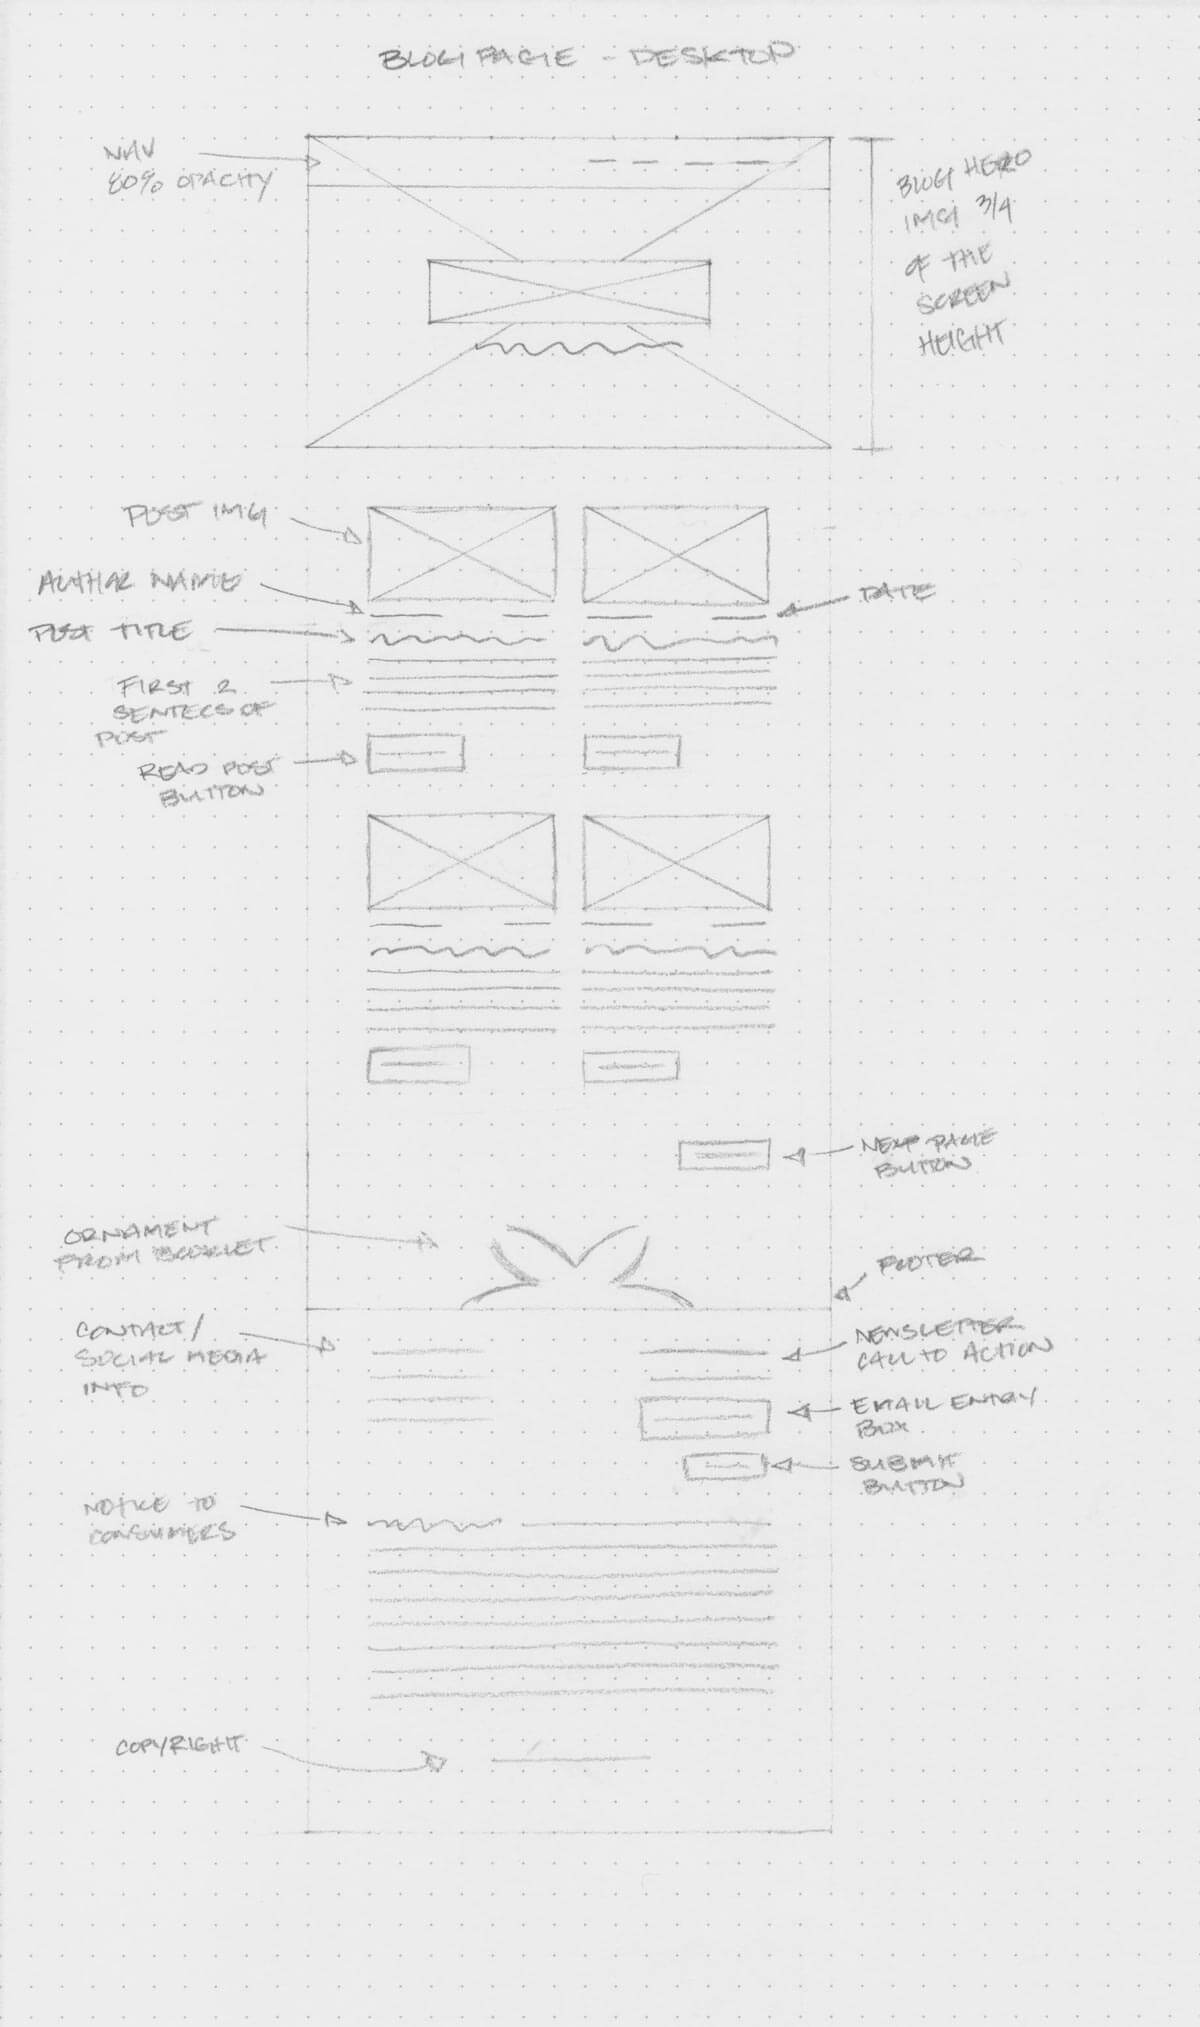 BLOG PAGE - DESKTOP
NAV
80% OPACITY
BLOG HERO
IMG 3/4
OF THE
SCREEN
HEIGHT
POST IMG
AUTHOR NAME
DATE
POST TITLE
FIRST 2
SENTECS OF
POST
READ POST
BUTTON
NEXT PAGE
BUTTON
ORNAMENT
FROM BOOKLET
FOOTER
CONTACT/
SOCIAL MEDIA
INFO
NEWSLETTER
CALL TO ACTION
EMAIL ENTRY
BOX
SUBMIT
BUTTON
NOTICE TO
CONSUMERS
COPYRIGHT